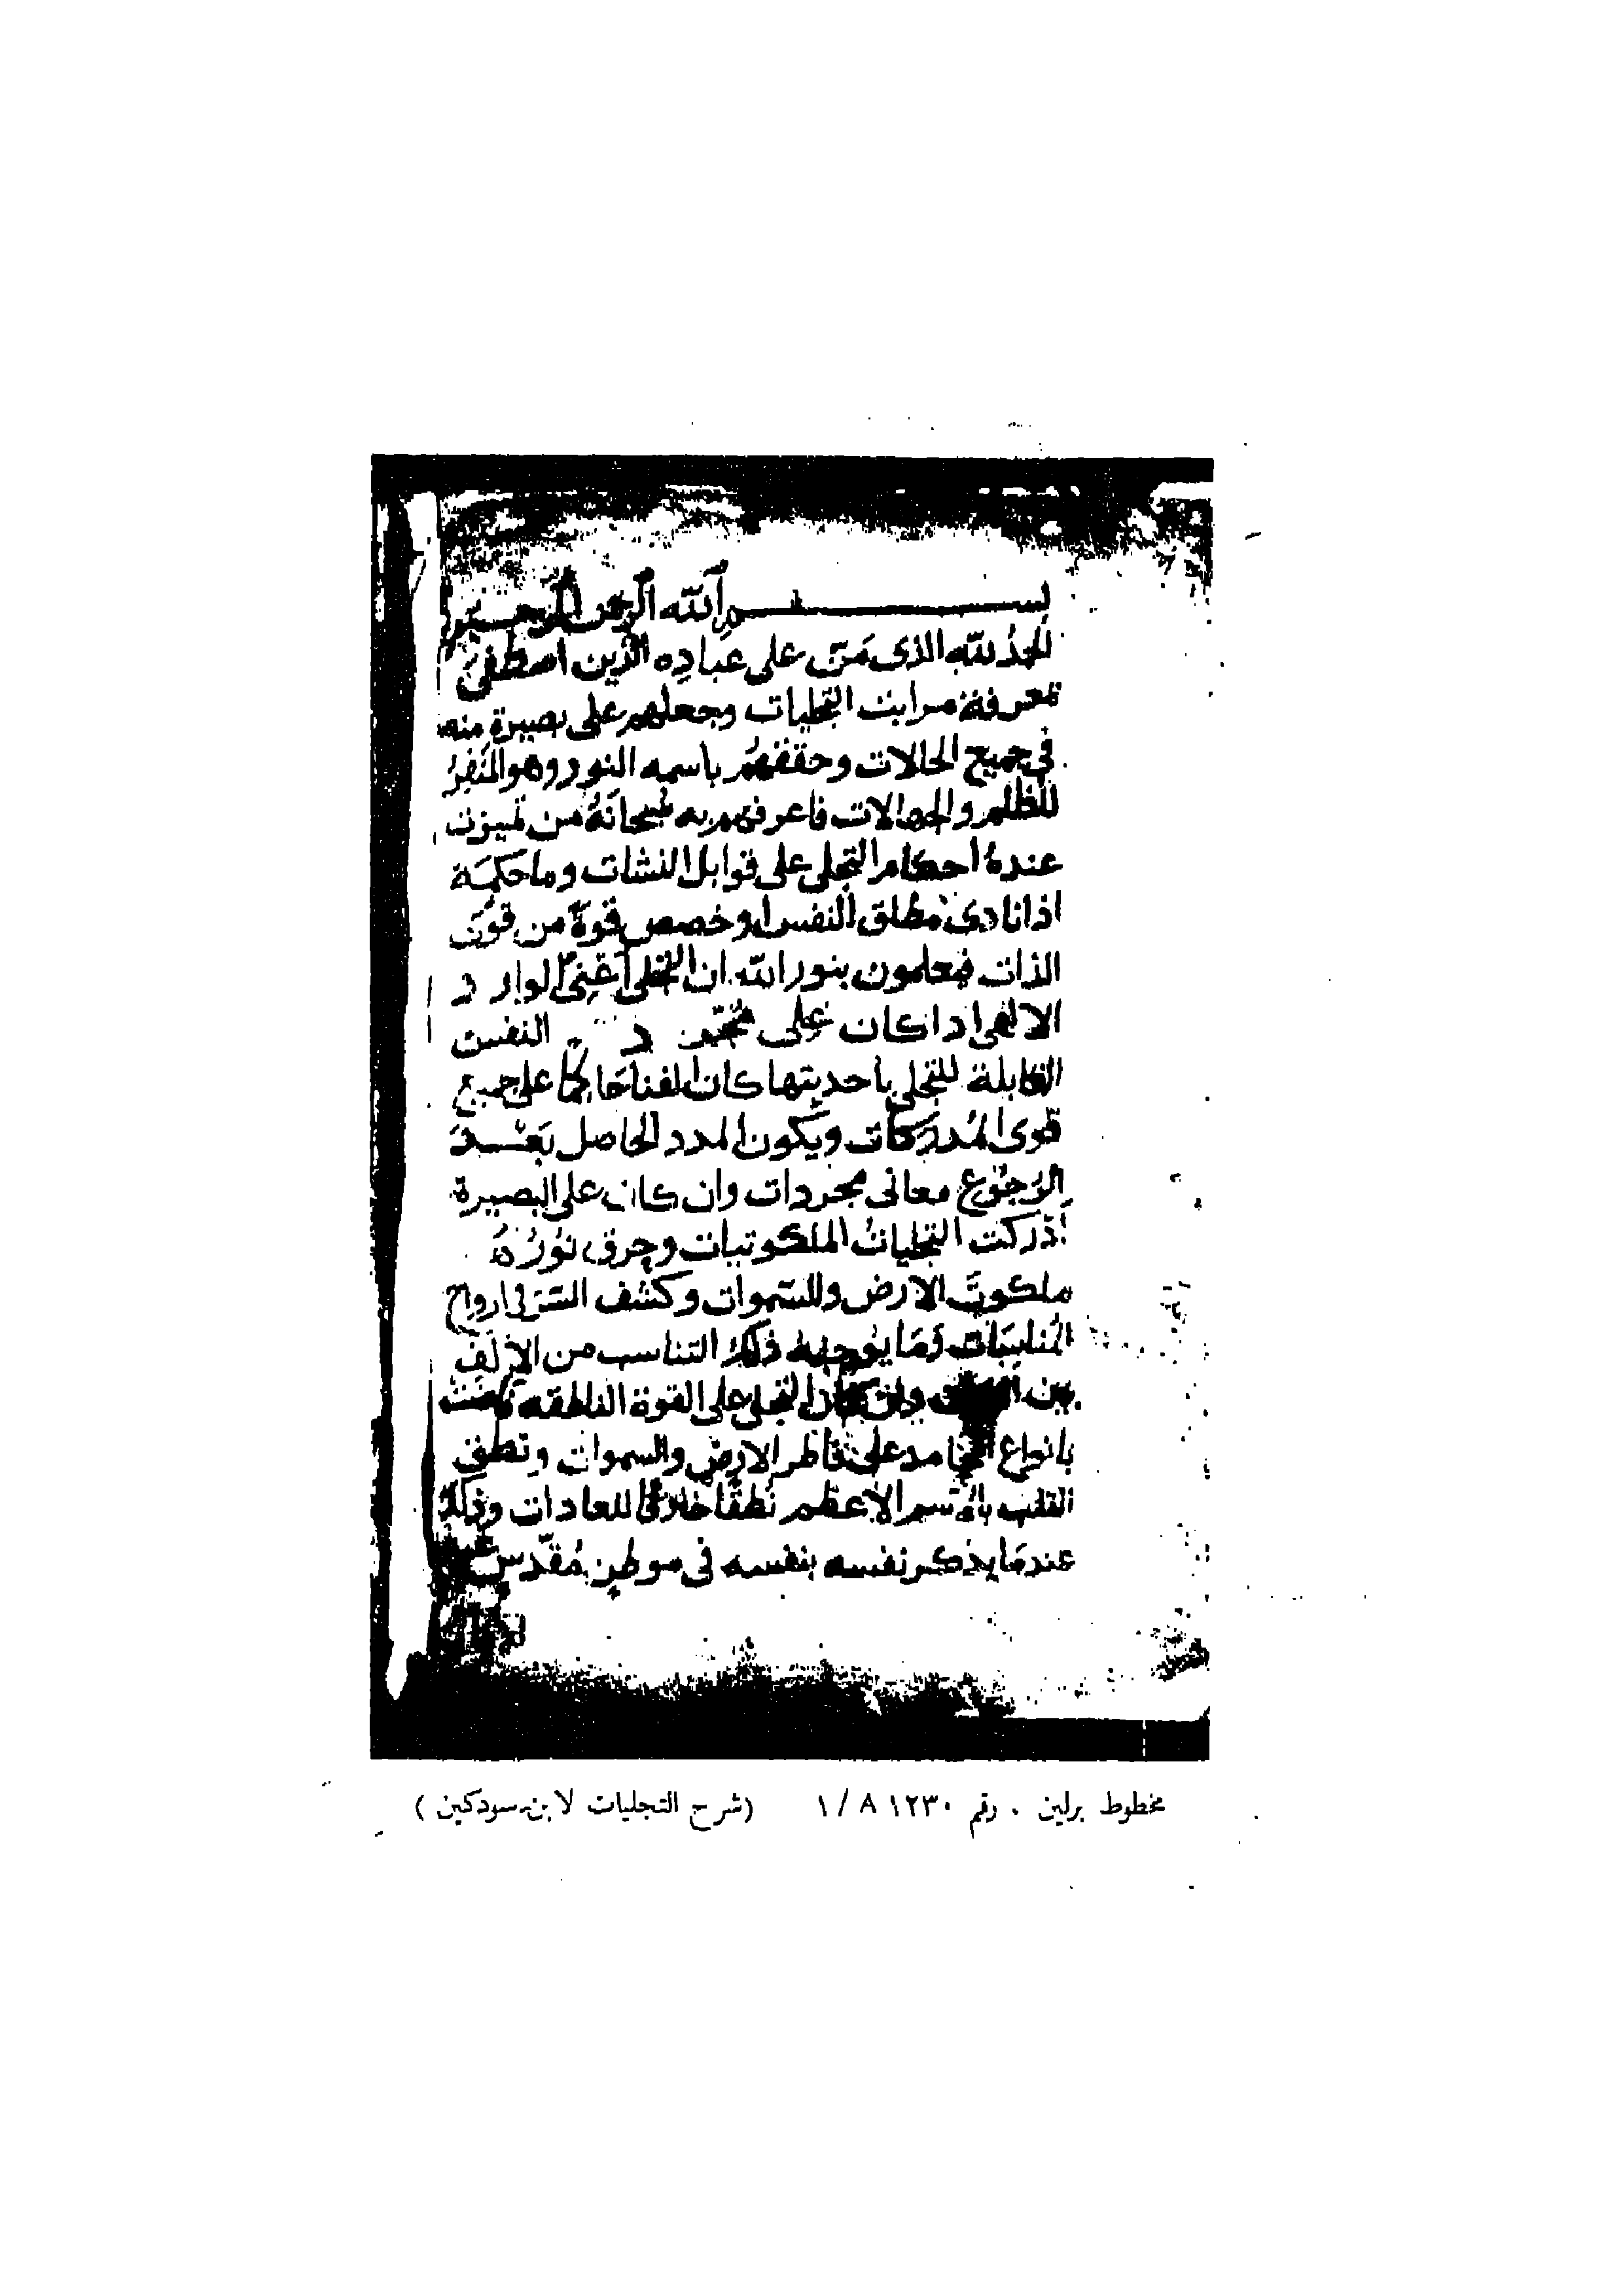 بسم الله الرحمن الرحيم
الحمد لله الذى مَنّ على عباده الذين اصطفى
بمعرفة مراتب التجليات وجعلهم على بصيرة منه
فى جميع الحالات وحققهم باسمه النور وهو المنفر
للظلم والجهالات فاعرفهم به سبحانه من تميزت
عنده أحكام التجلى على قوابل النشات وما حكمه
اذا نادى مطلق النفس او خصص قوة من قوى
الذات فيعلمون بنور الله ان التجلى أعنى الوارد
الالهى اذا كان على النفس
القابلة للتجلى باحديتها كان الفنا حاكما على جميع
قوى المدركات ويكون المدد الحاصل بعد
الرجوع معانى مجردات وان كان على البصيرة
أدركت التجليات الملكوتيات وخرق نوره
ملكوت الارض والسموات وكشف السر فى ارواح
المناسبات وما يوجبه ذلك التناسب من الازلف
بين وان كان التجلى على القوة الناطقه
بانواع المحامد على فاطر الارض والسموات ونطق
القلب بالاسم الأعظم نطقًا خارقا للعادات وذلك
عندما يذكر نفسه بنفسه فى موطن مُقدّس
مخطوط برلين . رقم ١٢٣٠ A / ١ (شرح التجليات لابن سودكين)